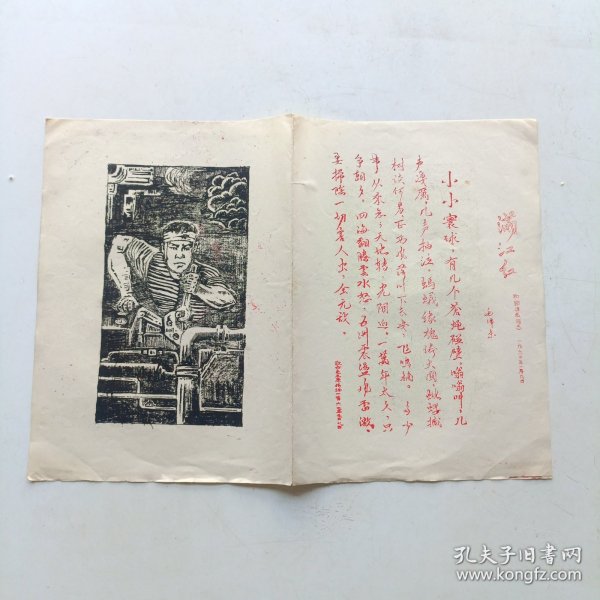 满江红
毛泽东
小小寰球，有几个苍蝇碰壁。嗡嗡叫，几
声凄厉，几声抽泣。蚂蟻缘槐誇大國，蚍蜉撼
树谈何易。正西風落叶下长安，飞鸣镝。多少
事，从来急；天地转，光阴迫。一萬年太久，只
争朝夕。四海翻腾雲水怒，五洲震盪風雷激。
要掃除一切害人虫，全无敌。
孔夫子旧书网
www.kongfz.com